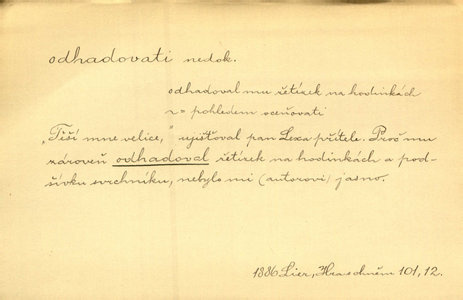 odhadovati nedok.
odhadoval mu řetízek na hodinkách
= pohledem oceňovati
„Těší mne velice," ujišťoval pan Lexa přítele. Proč mu
zároveň odhadoval řetízek na hodinkách a pod-
šívku svrchníku, nebylo mi (autorovi) jasno.
1886 Lier, 101, 12.